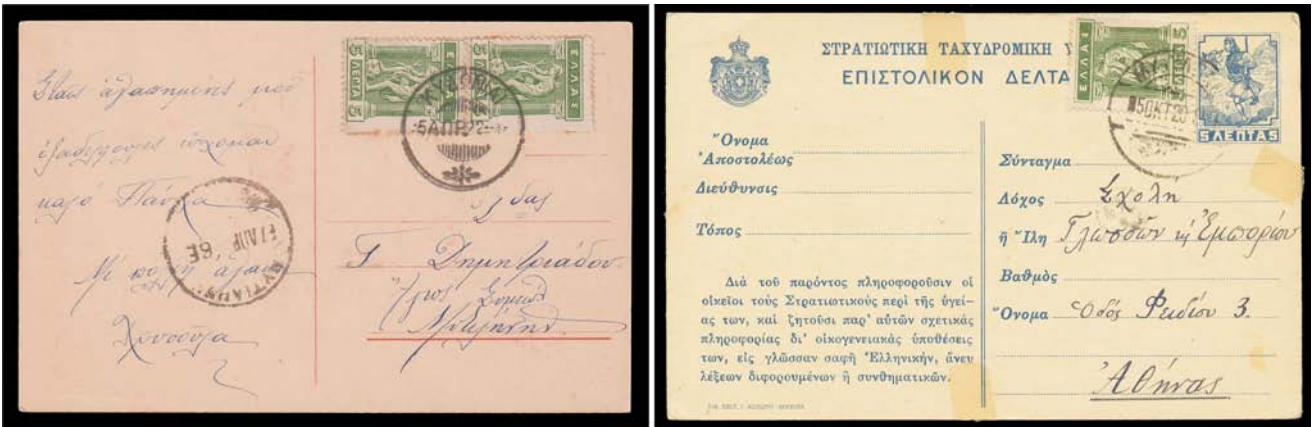 5 ΛΕΠΤΑ 5
ΕΛΛΑΣ
5 ΛΕΠΤΑ 5
ΕΛΛΑΣ
5ΑΠΡ.22
μού
καλό Πάσχα
7 ΑΠΡ
δας
Δημητριάδου
Μυτιλήνην
ΣΤΡΑΤΙΩΤΙΚΗ ΤΑΧΥΔΡΟΜΙΚΗ Υ
ΕΠΙΣΤΟΛΙΚΟΝ ΔΕΛΤΑ
ΕΛΛΑΣ
5ΟΚΤ20
5 ΛΕΠΤΑ 5
Ὄνομα
Ἀποστολέως
Διεύθυνσις
Τόπος
Διὰ τοῦ παρόντος πληροφοροῦσιν οἱ
οἰκεῖοι τοὺς Στρατιωτικοὺς περὶ τῆς ὑγεί-
ας των, καὶ ζητοῦσι παρ' αὐτῶν σχετικὰς
πληροφορίας δι' οἰκογενειακὰς ὑποθέσεις
των, εἰς γλῶσσαν σαφῆ Ἑλληνικήν, ἄνευ
λέξεων διφορουμένων ἢ συνθηματικῶν.
Σύνταγμα
Λόχος Σχολη
ἢ Ἴλη Γλωσσῶν Ἐμπορίου
Βαθμὸς
Ὄνομα Ὁδός Φειδίου 3.
Ἀθήνας